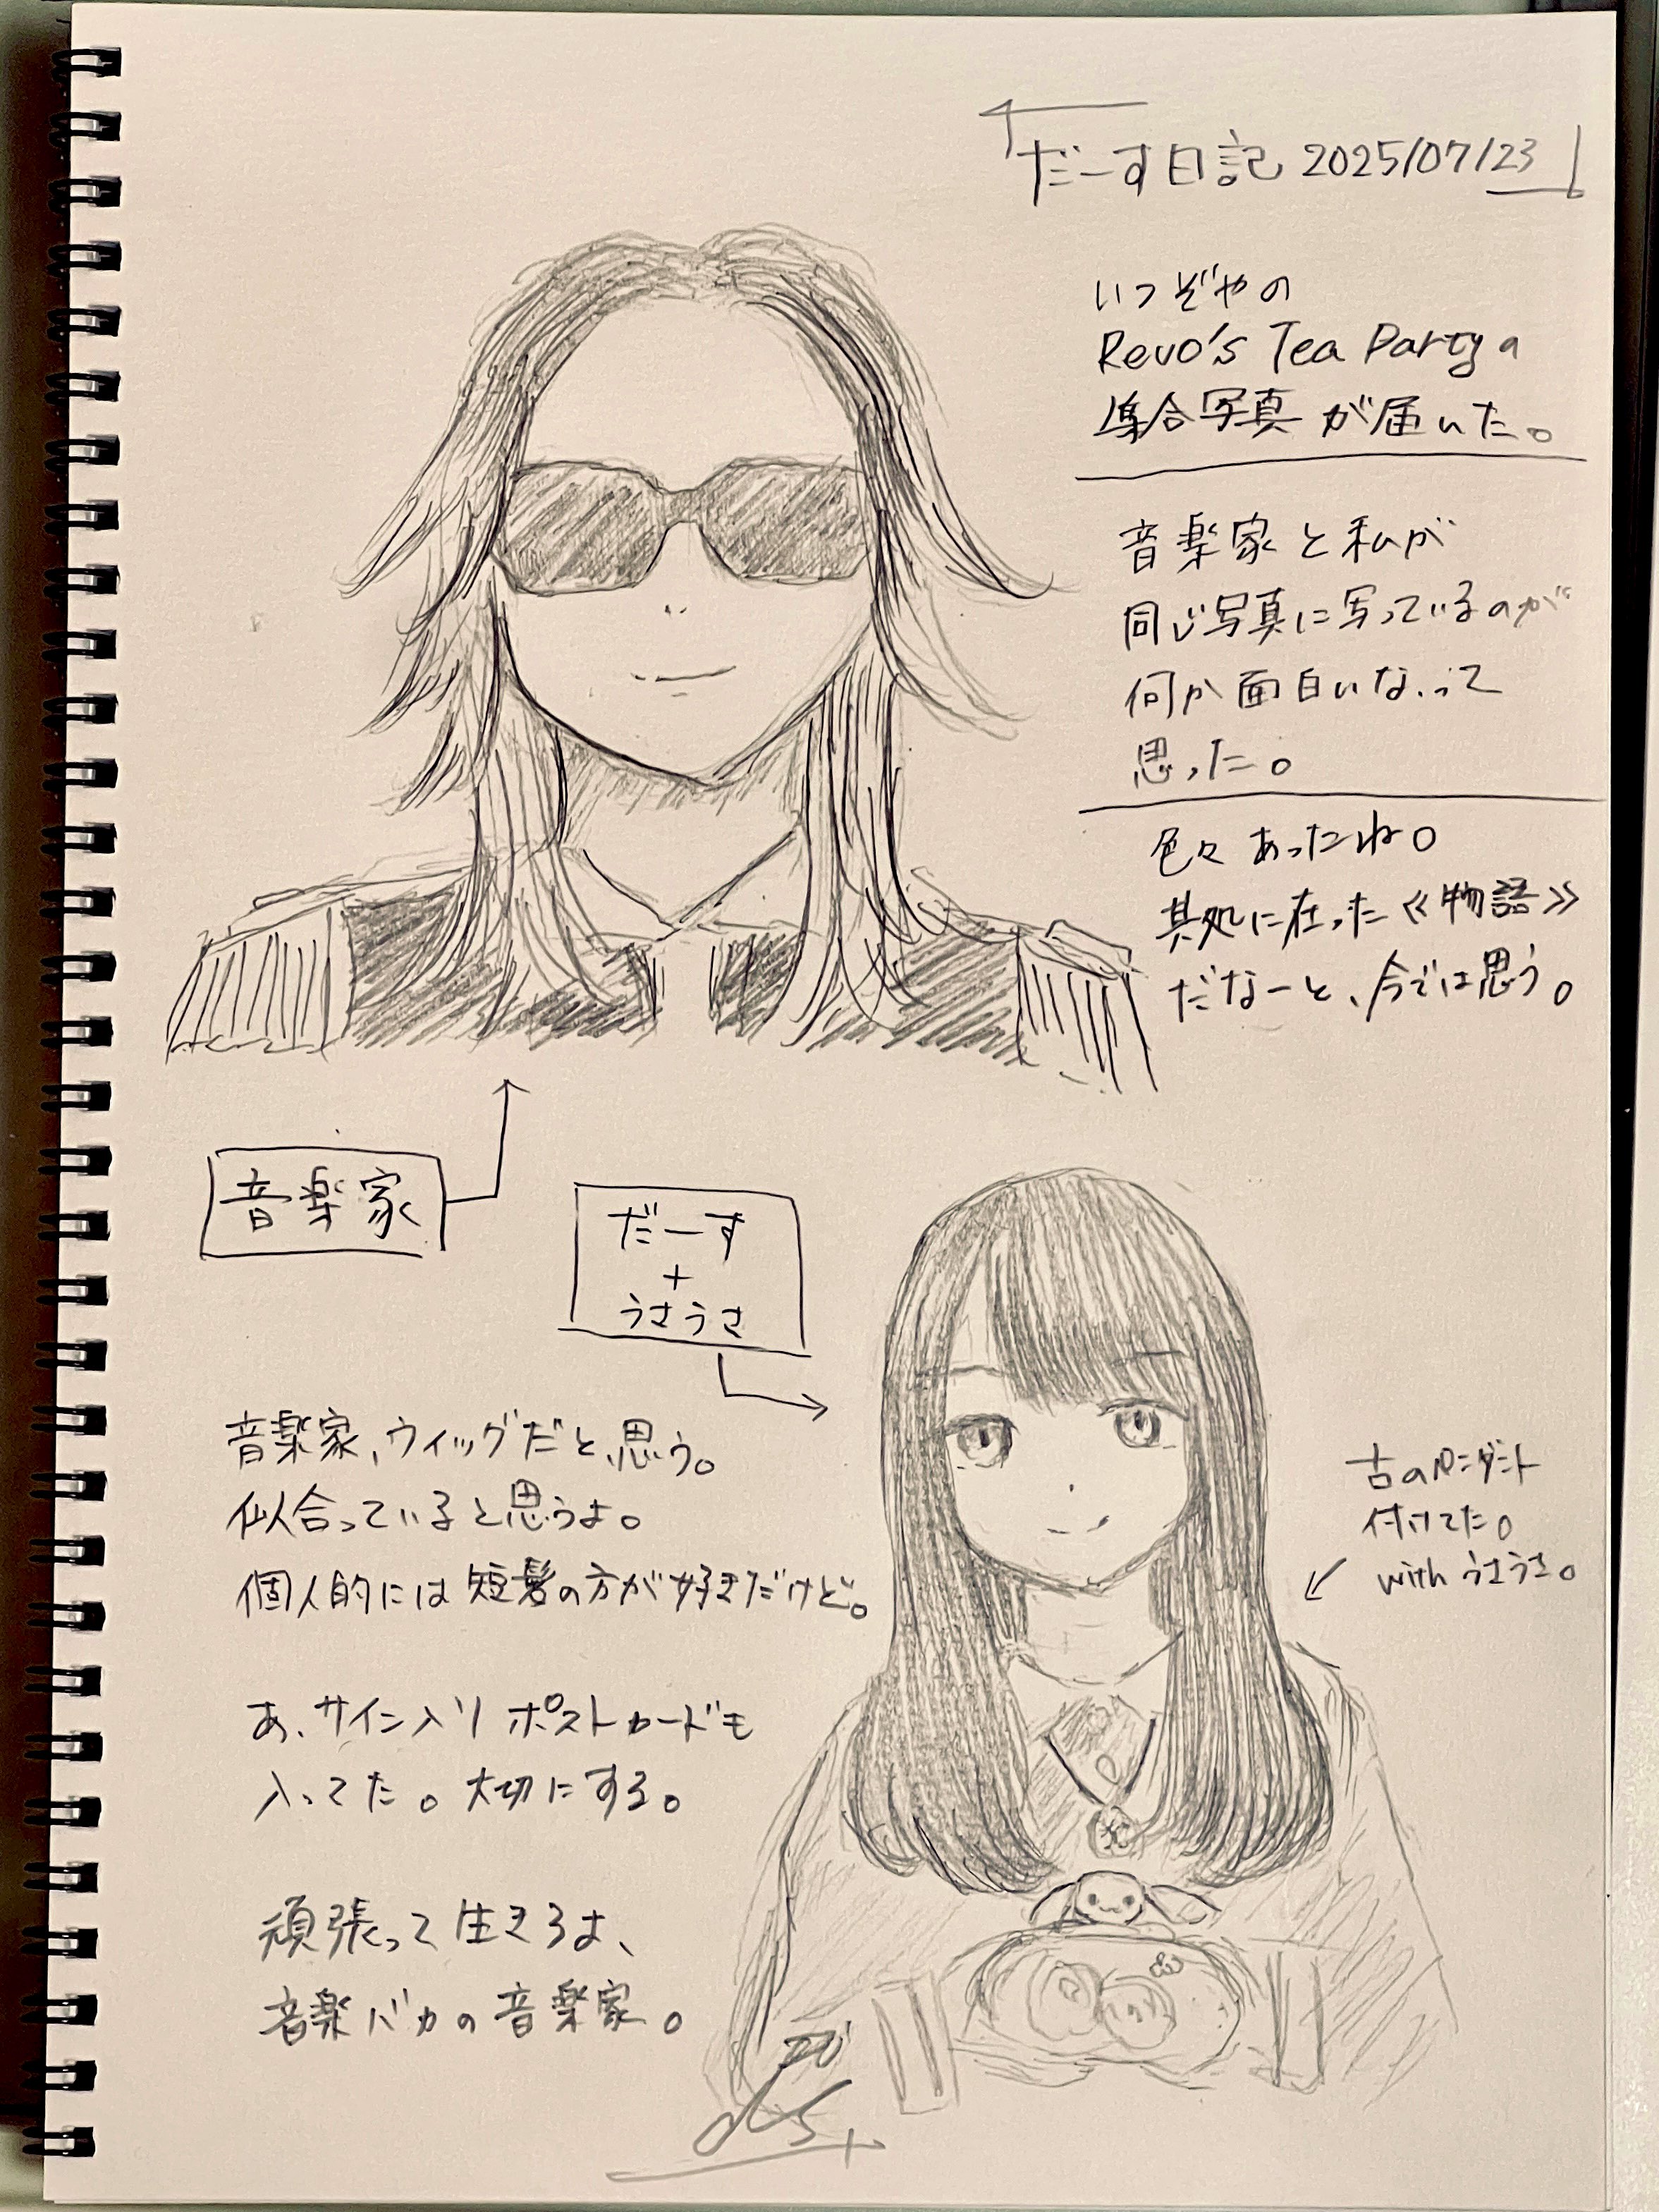 「だーす日記 2025/07/23」
いつぞやの
Revo's Tea Partyの
集合写真が届いた。
音楽家と私が
同じ写真に写っているのが
何か面白いなって
思った。
色々あったね。
其処に在った≪物語≫
だなーと、今では思う。
音楽家
だーす
+
うさうさ
音楽家、ウィッグだと思う。
似合っていると思うよ。
個人的には短髪の方が好きだけど。
古のペンダント
付けてた。
with うさうさ。
あ、サイン入りポストカードも
入ってた。大切にする。
頑張って生きろよ、
音楽バカの音楽家。